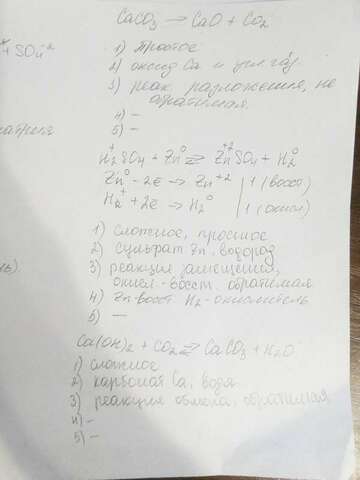 CaCO₃ → CaO + CO₂
+ SO₄²
1) простое
2) оксид Ca и угл газ
3) реак разложения, не
обратимая
4) –
5) –
H₂⁺SO₄ + Zn⁰ ⇄ Zn⁺²SO₄ + H₂⁰
Zn⁰ – 2ē → Zn⁺² | 1 (восст)
H₂⁺ + 2ē → H₂⁰ | 1 (окисл)
1) сложное, простое
2) сульфат Zn, водород
3) реакция замещения,
окисл-восст. обратимая
4) Zn-восст H₂-окислитель
5) –
Ca(OH)₂ + CO₂ ⇄ CaCO₃ + H₂O
1) сложное
2) карбонат Ca, водя
3) реакция обмена, обратимая
4) –
5) –